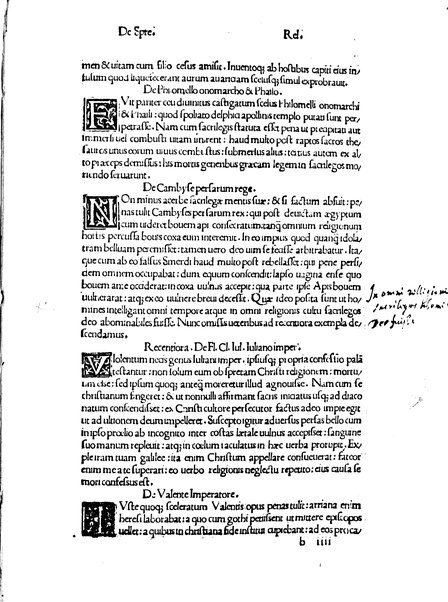 De Spre. Rel.
men & uitam cum filio cesus amisit. Inuentoq; ab hostibus capiti eius in
fusum quod liquefecerant aurum auariciam scelusq; simul exprobrauit.
De Philomello onomarcho & Phailo.
FVit pariter ceu diuinitus castigatum scelus Philomelli onomarchi
& Phaili: quod spoliato delphici apollinis templo putari sunt per
petrasse. Nam cum sacrilegis statuta esset pena ut precipitati aut
immersi uel combusti uitam finirent: haud multo post raptos sacros the
sauros unus eorum uiuus combustus: submersus alius: tertius autem ex al
to praeceps demissus: his mortis generibus graecam legem in sacrilegos mo
riendo seruarunt.
De Cambyse persarum rege.
NOn minus acerbe sacrilegae mentis suae: & si factum absuit: pe
nas tulit Cambyses persarum rex: qui post deuictam aegyptum
cum uideret bouem api consecratum: tanq omnium religionum
hostis percussa bouis coxa eum interemit. In eo impius quod quanq idola
tram belluam peremisset: tamen uero deo uim se fecisse arbitrabatur. Ita
que cum ab eo falsus Smerdi haud multo post rebellasset: qui pene persi
dem omnem occupabat: dum equum conscendit: lapso uagina ense quo
bouem ante occiderat: in coxa uulnus accepit: qua parte ipse Apis bouem
uulnerarat: atq; ex eo uulnere breui decessit. Quae ideo posita sunt ut ho
mines intelligant omni tempore atque in omni religionis cultu sacrilegos
deo abominabiles fuisse. Nunc omissis ueteribus ad recentiora exempla de
scendamus.
In omni religione
sacrilegos
deo fuisse
Recentiora. De Fl. Cl. Iul. Iuliano imper.
VIolentum necis genus Iuliani imper. ipsiusq; propria confessio palā
testantur: non solum eum ob spretam Christi religionem: mortu
um esse: sed ipsum quoq; anteq moreretur illud agnouisse. Nam cum se
christianum fingeret: & ut nonnulli affirmant sacris initiatus usq; ad diaco
natum conscendisset: ex Christi cultore persecutor factus adeo impie egit
ut ad ultionem deum impelleret. Suscepto igitur aduersus persas bello cum
in ipso praelio ab incognito inter costas laetale uulnus accepisset: sanguine
suo manum repleuit: atq; in coelum iaculatus in haec uerba prorupit. Ex
pletram tuam galilee: ita enim Christum appellare consueuerat: fateor
enim me a te superari: eo uerbo religionis neglectu repetito: eius causa se
mori confessus est.
De Valente Imperatore.
IVste quoq; sceleratum Valentis opus penas tulit: arriana enim
heresi laborabat: a quo cum gothi petissent ut mittere episcopos
uellet: a quibus in christiana fide institui cupiebant: ad eos proca/
b iiii